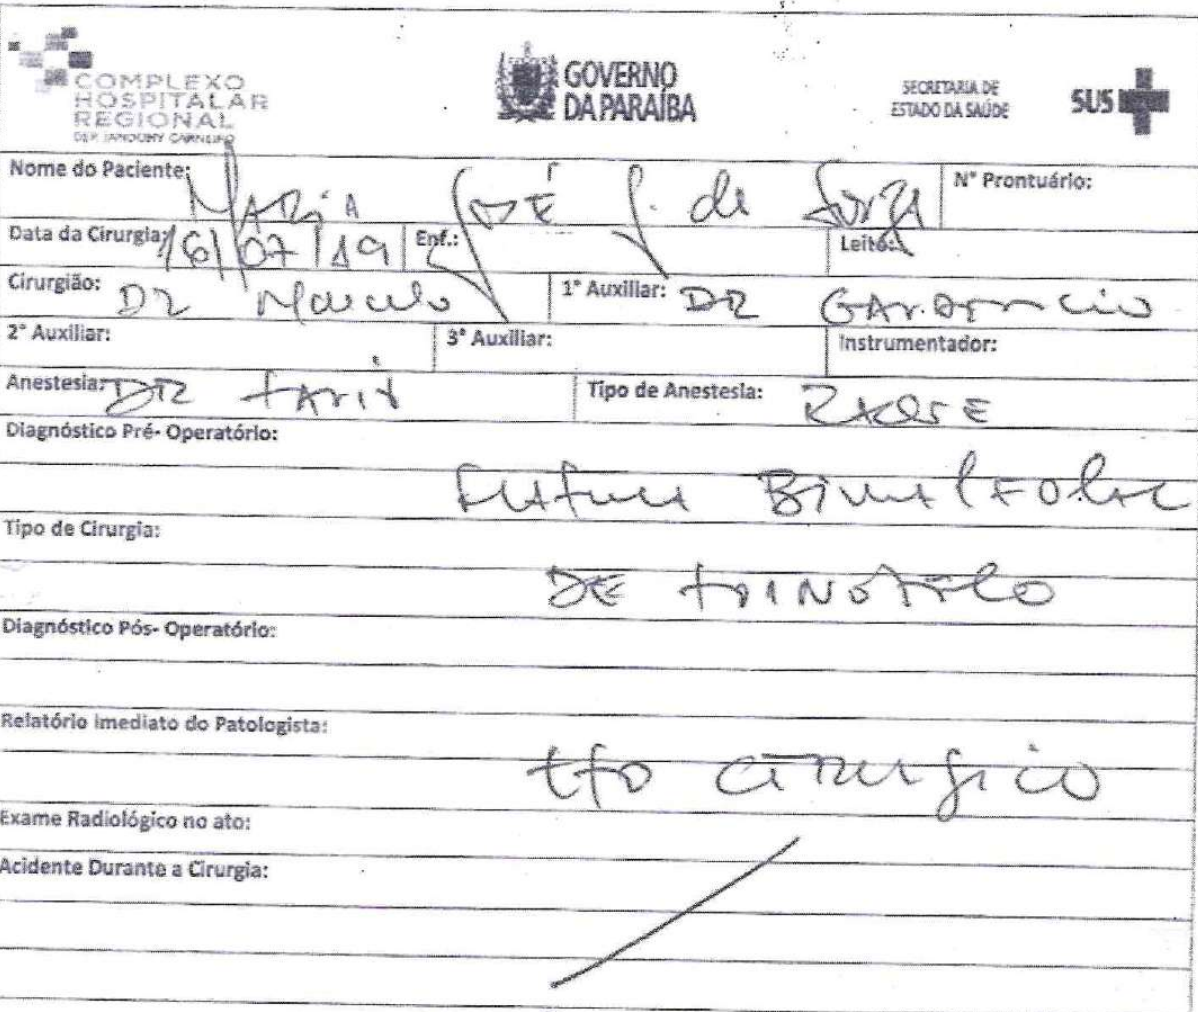 COMPLEXO
HOSPITALAR
REGIONAL
DEP. JANDUHY CARNEIRO
GOVERNO
DA PARAÍBA
SECRETARIA DE
ESTADO DA SAÚDE
SUS
Nome do Paciente: MARIA JOSÉ de N° Prontuário:
Data da Cirurgia: 16/07/19 Enf.: Leito:
Cirurgião: DR Marcelo 1° Auxiliar: DR
2° Auxiliar: 3° Auxiliar: Instrumentador:
Anestesia: DR Tipo de Anestesia:
Diagnóstico Pré- Operatório:
Fratura Bimaleolar
Tipo de Cirurgia:
DE tornozelo
Diagnóstico Pós- Operatório:
Relatório Imediato do Patologista:
tto cirurgico
Exame Radiológico no ato:
Acidente Durante a Cirurgia: